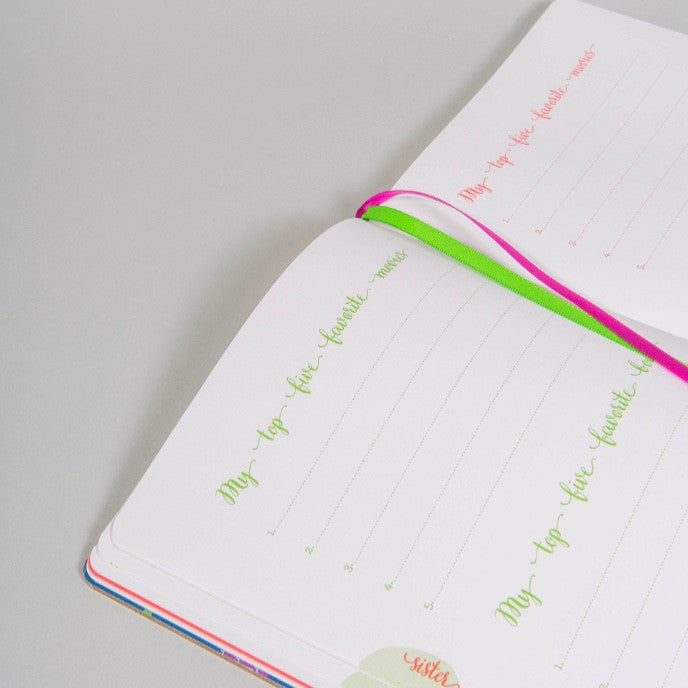 My top five favorite movies
1.
2.
3.
4.
5.
My top five favorite
1.
2.
sister
My top five favorite movies
1.
2.
3.
4.
5.